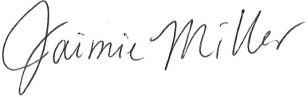 Jaimie Miller